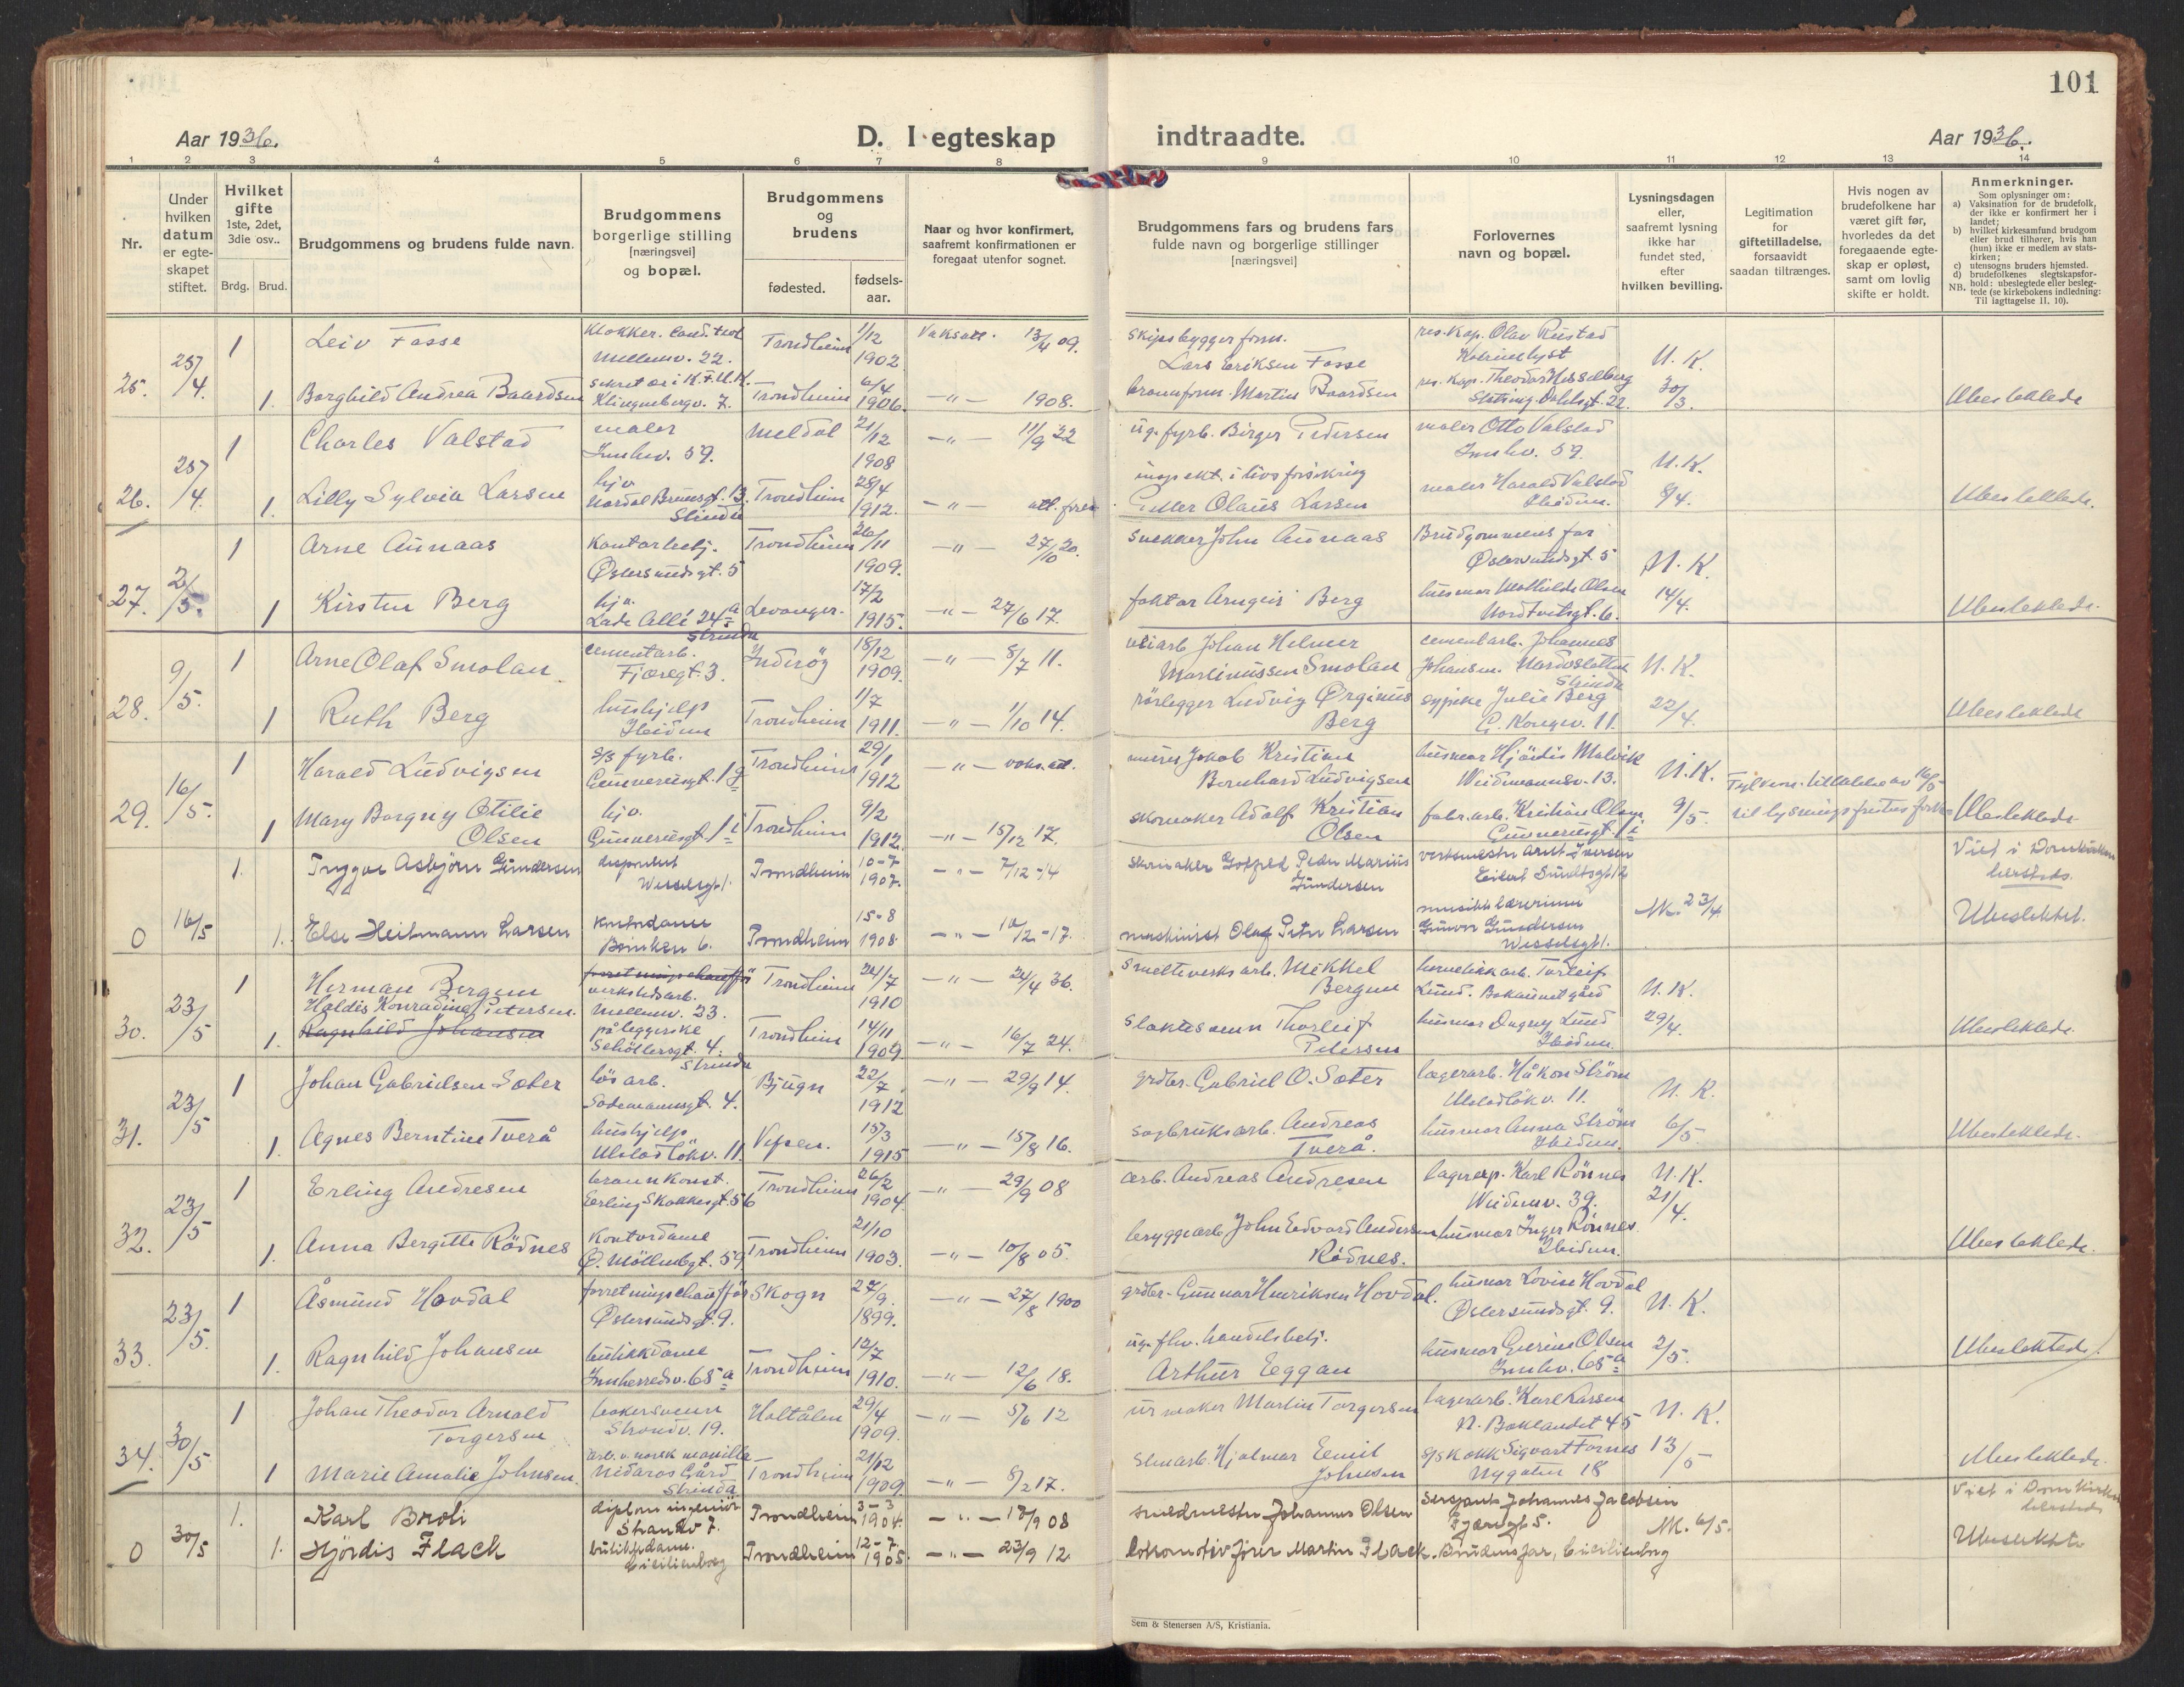 101
Aar 1936.
D. I egteskap
indtraadte.
Aar 1936.
1 2 3 4 5 6 7 8 9 10 11 12 13 14
Nr.
Under hvilken datum er egte-skapet stiftet.
Hvilket gifte 1ste, 2det, 3die osv..
Brdg. Brud.
Brudgommens og brudens fulde navn.
Brudgommens borgerlige stilling [næringsvei] og bopæl.
Brudgommens og brudens
fødested.
fødsels-aar.
Naar og hvor konfirmert, saafremt konfirmationen er foregaat utenfor sognet.
Brudgommens fars og brudens fars fulde navn og borgerlige stillinger [næringsvei]
Forlovernes navn og bopæl.
Lysningsdagen eller, saafremt lysning ikke har fundet sted, efter hvilken bevilling.
Legitimation for giftetilladelse, forsaavidt saadan tiltrænges.
Hvis nogen av brudefolkene har været gift før, hvorledes da det foregaaende egte-skap er opløst, samt om lovlig skifte er holdt.
Anmerkninger.
Som oplysninger om:
a) Vaksination for de brudefolk, der ikke er konfirmert her i landet;
b) hvilket kirkesamfund brudgom eller brud tilhører, hvis han (hun) ikke er medlem av stats-kirken;
c) utensogns bruders hjemsted.
d) brudefolkenes slegtskapsfor-hold: ubeslegtede eller besleg-tede (se kirkebokens indledning:
NB. Til iagttagelse II. 10).
25. 25/4. 1 Leiv Fosse
Klokker. cand. teol
Mellemv. 22.
Trondheim 1/12 1902
Vaksatt. 13/4 09.
Skipsbygger form.
Lars Eriksen Fosse
res. kap. Olav Rustad
U. K.
30/3.
1. Borghild Andrea Baardsen
sekretær i K.F.U.K.
Klingenbergv. 7.
Trondheim 6/4 1906.
-"- 1908.
Martin Baardsen
res. kap. Theodor Hesselberg
Ubeslektede
26. 25/4. 1 Charles Valstad
maler
Innhv. 59.
Meldal 21/12 1908
-"- 11/9 22
ug. fyrb. Birger Pedersen
maler Otto Valstad
Innhv. 59.
U. K.
8/4.
1. Lilly Sylvia Larsen
hjv
Strinda
Trondheim 28/4 1912.
-"-
inspekt. i livsforsikring
Peder Olaus Larsen
maler Harald Valstad
Ibidem.
Ubeslektede.
27. 2/5. 1 Arne Aunaas
Kontorbetj.
Østersundsgt. 5
Trondheim 26/11 1909.
-"- 27/10 20.
Snekker John Aunaas
Brudgommens far
Østersundsgt. 5
U. K.
14/4.
1 Kirsten Berg
hjv.
Lade Allé 24a
Strinda
Levanger. 17/2 1915.
-"- 27/6 17.
faktor Arngeir Berg
husmor Mathilde Olsen
Ubeslektede.
28. 9/5. 1 Arne Olaf Smolan
cementarb.
Fjæregt. 3.
Inderøy 18/12 1909.
-"- 8/7 11.
Johan Helmer
Martinussen Smolan
cementarb. Johannes
Johansen.
Strinda
U. K.
22/4.
1 Ruth Berg
hushjelp
Ibidem
Trondheim 1/7 1911.
-"- 1/10 14.
rørlegger Ludvig Ørginus
Berg
sypike Julie Berg
G. Kongev. 11.
Ubeslektede
29. 16/5. 1 Harald Ludvigsen
s/s fyrb.
Gunnerusgt. 1g
Trondheim 29/1 1912
-"- voks. att.
murer Jakob Kristian
Bernhard Ludvigsen
husmor Hjørdis Malvik
Weidemannsv. 13.
U. K.
9/5.
1 Mary Borgny Otilie
Olsen
hjv.
Gunnerusgt. 1i
Trondheim 9/2 1912.
-"- 15/12 17.
skomaker Adolf Kristian
Olsen
fabr. arb. Kristian Olsen
Gunnerusgt. 1i
Ubeslektede.
0 16/5 1. Tryggve Asbjørn Gundersen
disponent
Wesselsgt 1.
Trondheim 10-7 1907.
-"- 7/12-14
Skomaker Gotfred Peder Marius
Gundersen
verksmester Arnt Iversen
Eilert Sundtsgt 12
Viet i Domkirken
hersteds.
1. Else Heitmann Larsen
kontordame
Brinken 6.
Trondheim 15-8 1908
-"- 10/12-17.
maskinist Olag Peter Larsen
musikklærerinne
Gunvor Gundersen
Wesselsgt 1.
23/4
Ubeslektet.
30. 23/5 1 Herman Bergum
forretningschauffør
verkstedsarb.
Mellemv. 23.
Trondheim 24/7 1910
-"- 24/4 36.
Smelteverksarb. Mikkel
Bergum
Torleif
Lund. Bakaunet gård
U. K.
29/4.
1. Haldis Konradine Petersen.
Ragnhild Johansen
påleggerske
Schøllersgt. 4.
Strinda
Trondheim 14/11 1909.
-"- 16/7 24.
Slaktesvenn Thorleif
Petersen
husmor Dagny Lund
Ibidem.
Ubeslektede.
31. 23/5 1 Johan Gabrielsen Sæter
løsarb.
Sodemannsgt. 4.
Bjugn 22/7 1912
-"- 29/9 14.
grdbr. Gabriel O. Sæter
lagerarb. Håkon Strøm
Ulstadløkv. 11.
U. K.
6/5.
1. Agnes Berntine Tverå
hushjelp
Ulstadløkv. 11.
Vefsen. 15/3 1915
-"- 15/8 16.
sagbruksarb. Andreas
Tverå.
husmor Anna Strøm
Ibidem.
Ubeslektede.
32. 23/5 1 Erling Andresen
brannkonst.
Erling Skakkesgt. 56
Trondheim 26/2 1904.
-"- 29/9 08
arb. Andreas Andresen
lagerexp. Karl Rønnes
Weidemv. 39.
U. K.
21/4.
1. Anna Bergitte Rødnes
Kontordame
Ø. Møllenbgt. 59
Trondheim 21/10 1903.
-"- 10/8 05.
bryggearb John Edvard Andersen
Rødnes.
husmor Inger Rønnes
Ibidem.
Ubeslektede.
33. 23/5. 1 Åsmund Hovdal
forretningschauffør
Østersundsgt. 9.
Skogn 27/9. 1899.
-"- 27/8 1900
grdbr. Gunnar Henriksen Hovdal.
husmor Lovise Hovdal
Østersundsgt. 9.
U. K.
2/5.
1. Ragnhild Johansen
butikkdame
Innherredsv. 65a
Trondheim 12/7 1910.
-"- 12/6 18.
ug. fhv. handelsbetj.
Arthur Eggan
husmor Gurine Olsen
Innhv. 65a
Ubeslektede.
34. 30/5 1 Johan Theodor Arnold
Torgersen
bakersvenn
Strandv. 19.
Haltålen 29/4 1909.
-"- 5/6 12
urmaker Martin Torgersen
lagerarb. Karl Larsen
N. Baklandet 45
U. K.
13/5
1 Marie Amalie Johnsen.
arb. v. norsk manilla
Nidaros Gård
Strinda
Trondheim 21/12 1909.
-"- 8/2 17.
Hjalmar Emil
Johnsen
s/s kokk Sigvart Fornes
Nygaten 18
Ubeslektede.
0 30/5 1. Karl Broli
diplomingeniør
Strandv 7.
Trondheim 3-3 1904.
-"- 13/9 08
smedmester Johannes Olsen
Sersjant Johannes Jacobsen
Fjæregt 5.
6/5.
Viet i Domkirken
hersteds
1. Hjørdis Flack
butikkdame.
Ceciliemborg
Trondheim 12-7 1905
-"- 23/9 12.
lokomotivfører Martin Flack.
Brudens far, Ceciliemborg
Ubeslektet
Sem & Stenersen A/S, Kristiania.